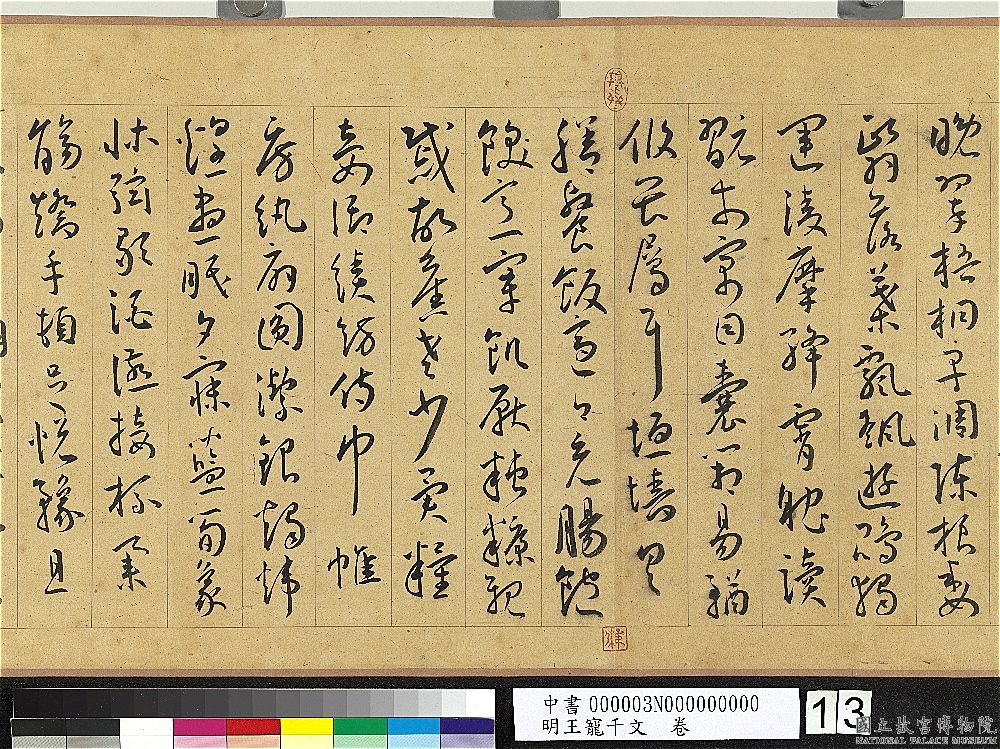 晚翠梧桐早凋陳根委
翳落葉飄颻遊鵾獨
運凌摩絳霄耽讀
翫市寓目囊箱易輶
攸畏屬耳垣墻具
膳餐飯適口充腸飽
飫烹宰飢厭糟糠親
戚故舊老少異糧
妾御績紡侍巾帷
房紈扇圓潔銀燭煒
煌晝眠夕寐藍筍象
牀弦歌酒讌接杯舉
觴矯手頓足悅豫且
中書 000003N000000000
明王寵千文 卷
13
國立故宮博物院
NATIONAL PALACE MUSEUM